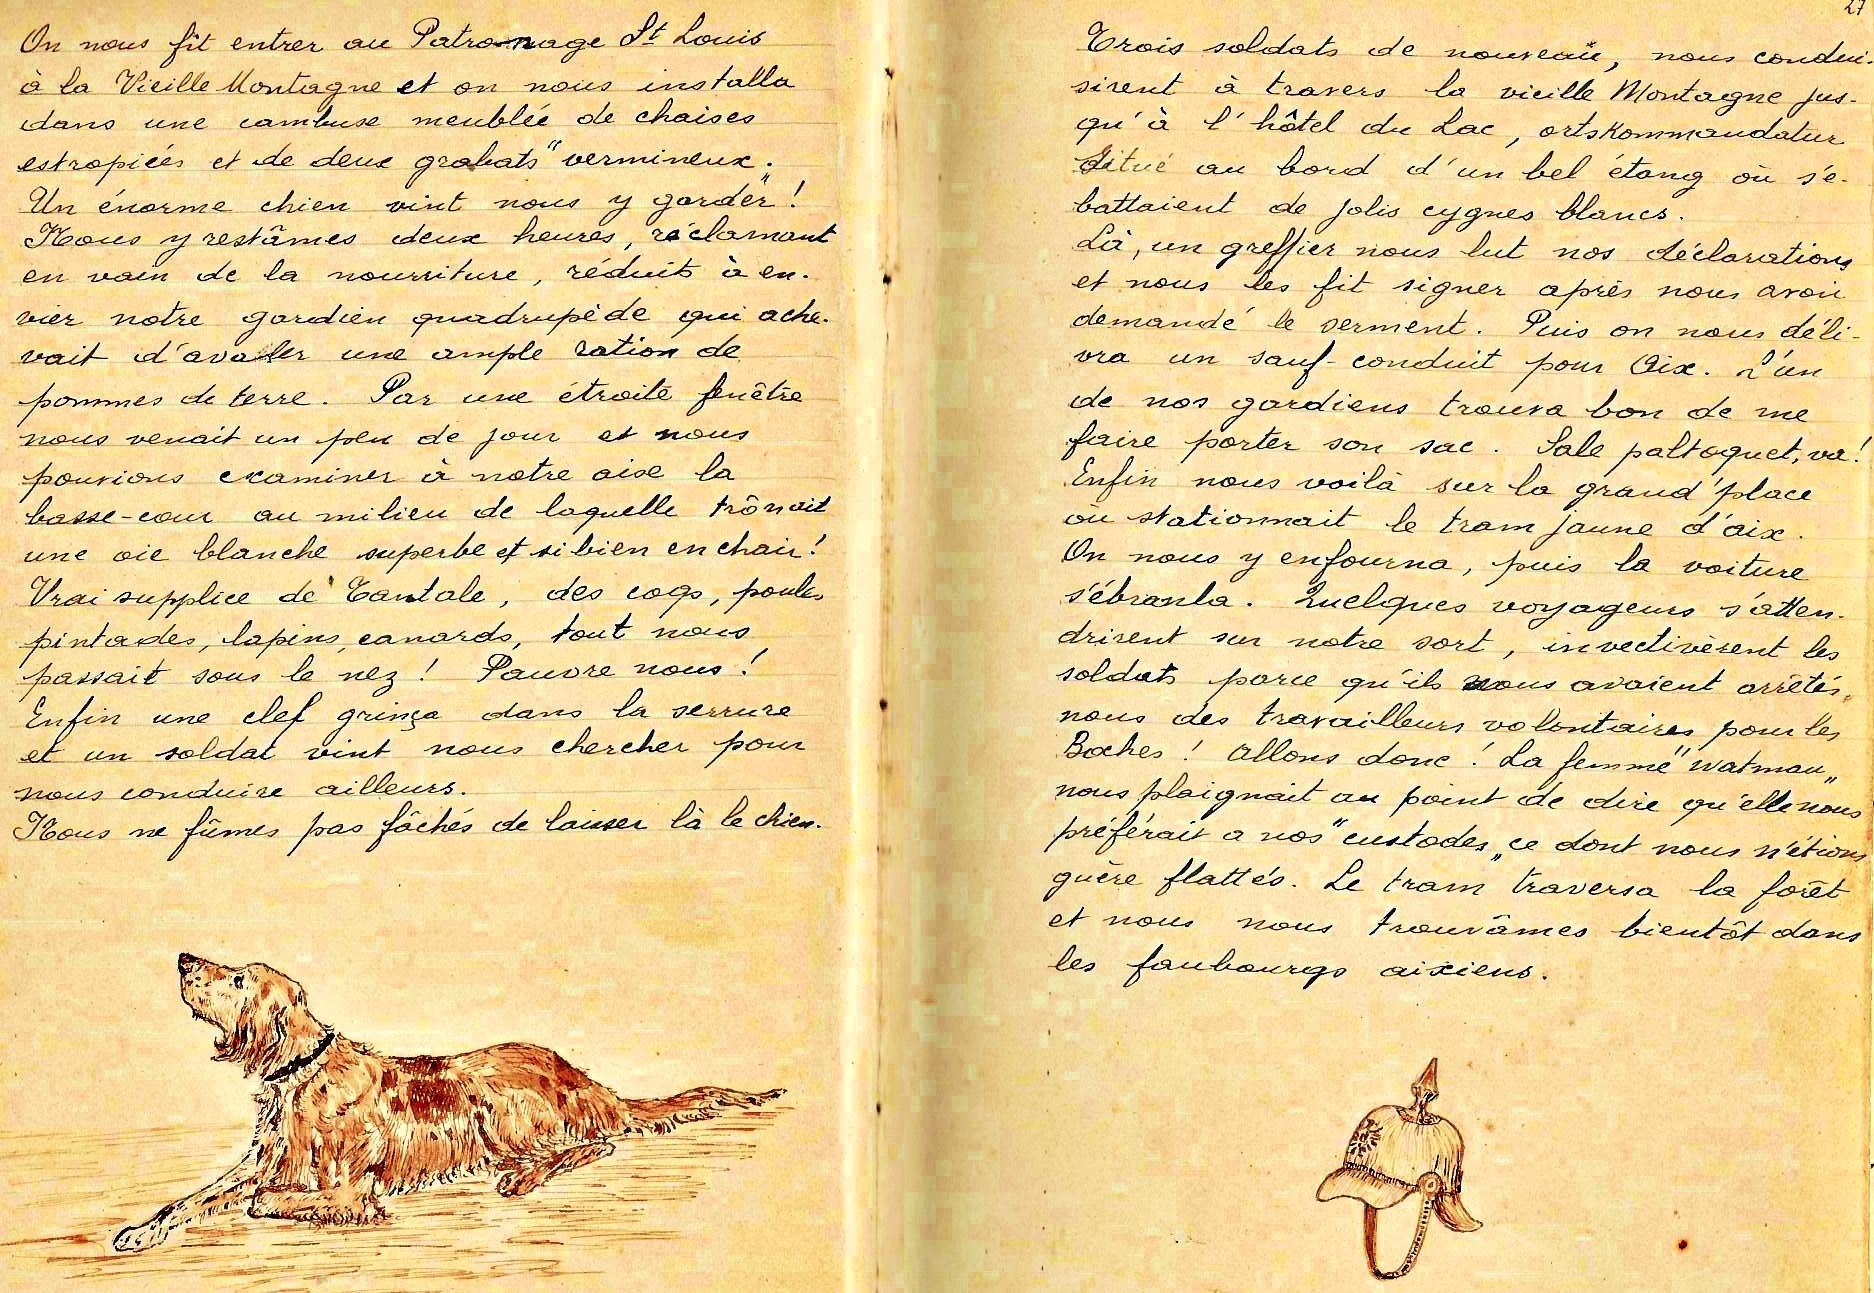 On nous fit entrer au Patronage St Louis
à la Vieille Montagne et on nous installa
dans une cambuse meublée de chaises
estropiées et de deux grabats "vermineux.
Un énorme chien vint nous y garder" !
Nous y restâmes deux heures, réclamant
en vain de la nourriture, réduits à en-
vier notre gardien quadrupède qui ache-
vait d'avaler une ample ration de
pommes de terre. Par une étroite fenêtre
nous venait un peu de jour et nous
pouvions examiner à notre aise la
basse-cour au milieu de laquelle trônait
une oie blanche superbe et si bien en chair !
Vrai supplice de Tantale, des coqs, poules
pintades, lapins, canards, tout nous
passait sous le nez ! Pauvre nous !
Enfin une clef grinça dans la serrure
et un soldat vint nous chercher pour
nous conduire ailleurs.
Nous ne fûmes pas fâchés de laisser là le chien.
27
Trois soldats de nouveau, nous condui-
sirent à travers la vieille Montagne jus-
qu'à l'hôtel du Lac, ortskommandatur
situé au bord d'un bel étang où s'é-
battaient de jolis cygnes blancs.
Là, un greffier nous lut nos déclarations
et nous les fit signer après nous avoir
demandé le serment. Puis on nous déli-
vra un sauf-conduit pour Aix. L'un
de nos gardiens trouva bon de me
faire porter son sac. Sale paltoquet, va !
Enfin nous voilà sur la grand'place
où stationnait le tram jaune d'aix.
On nous y enfourna, puis la voiture
s'ébranla. Quelques voyageurs s'atten-
drirent sur notre sort, invectivèrent les
soldats parce qu'ils nous avaient arrêtés,
nous des travailleurs volontaires pour les
Boches ! Allons donc ! La femme "watman"
nous plaignait au point de dire qu'elle nous
préférait a nos "custodes" ce dont nous n'étions
guère flattés. Le tram traversa la forêt
et nous nous trouvâmes bientôt dans
les faubourgs aixiens.